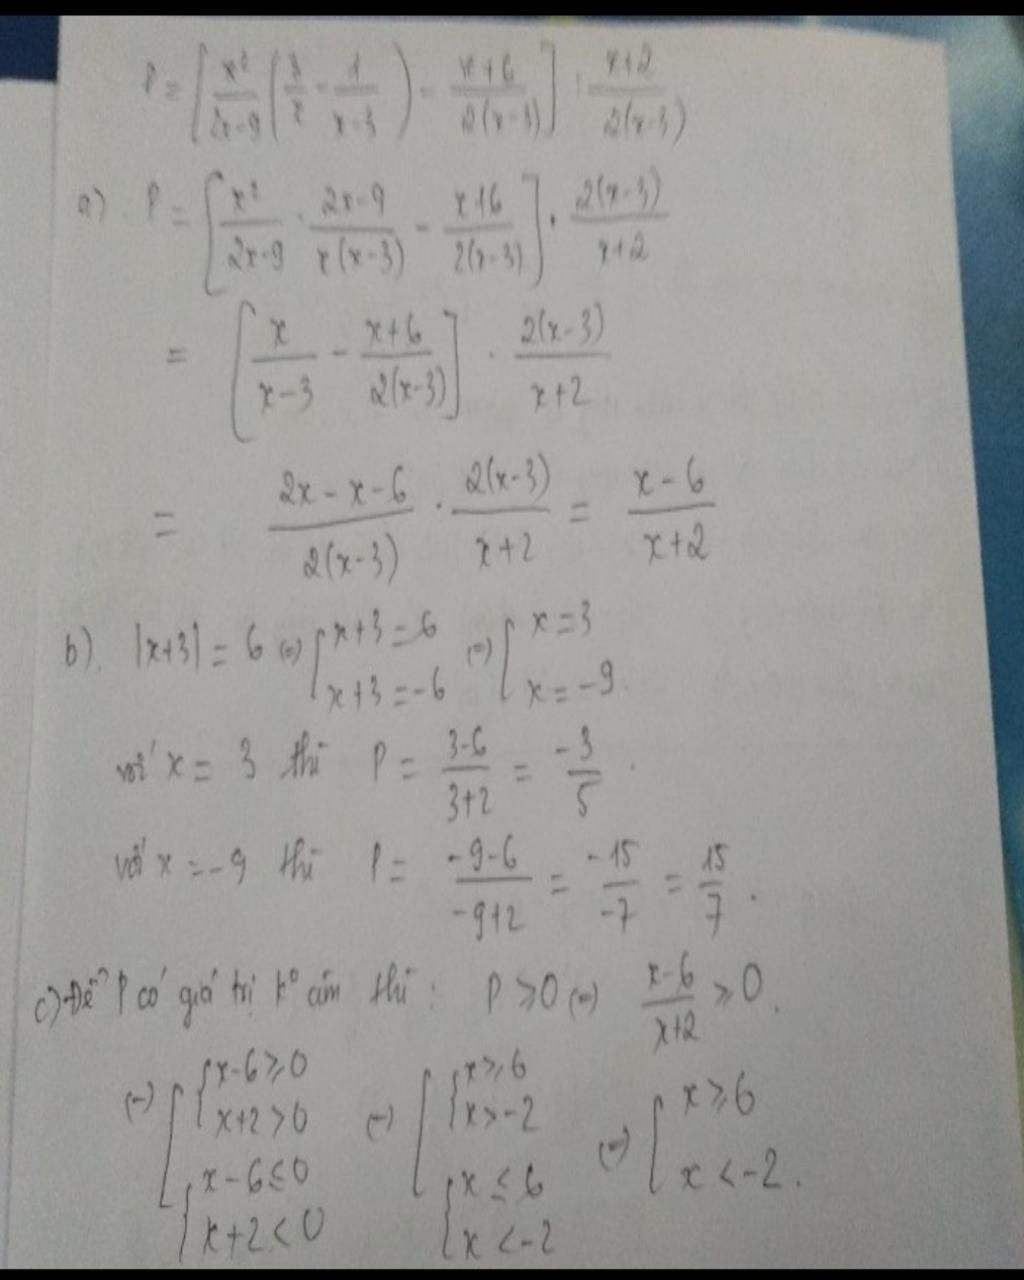 P = [x²/(2x-9) (3/x - 1/(x-3)) - (x+6)/(2(x-3))] : (x+2)/(2(x-3))
a) P = [x²/(2x-9) . (2x-9)/(x(x-3)) - (x+6)/(2(x-3))] . 2(x-3)/(x+2)
= [x/(x-3) - (x+6)/(2(x-3))] . 2(x-3)/(x+2)
= (2x-x-6)/(2(x-3)) . 2(x-3)/(x+2) = (x-6)/(x+2)
b). |x+3| = 6 (=) [x+3=6 (=) [x=3
x+3=-6 x=-9.
với x = 3 thì P = (3-6)/(3+2) = -3/5 .
với x = -9 thì P = (-9-6)/(-9+2) = -15/-7 = 15/7 .
c) Để P có giá trị kº âm thì : P ⩾ 0 (=) (x-6)/(x+2) ⩾ 0.
(=) [{x-6⩾0 (=) [{x⩾6 (=) [x⩾6
x+2>0 x>-2
{x-6≤0 {x≤6 x<-2.
x+2<0 x<-2